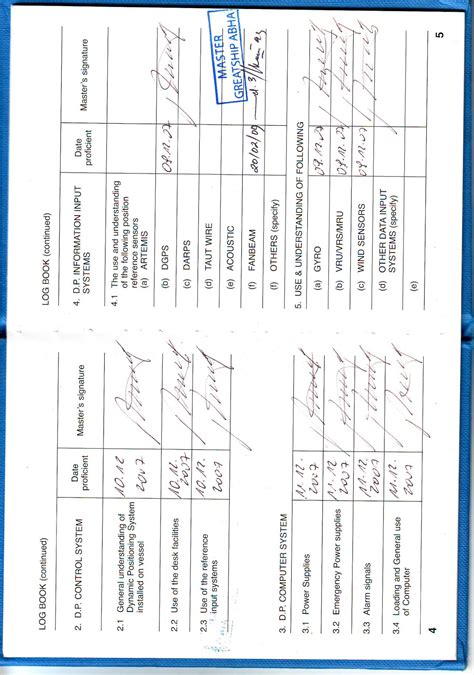 LOG BOOK (continued)
2. D.P. CONTROL SYSTEM
Date proficient
Master's signature
2.1 General understanding of
Dynamic Positioning System
installed on vessel
10.12
2007
2.2 Use of the desk facilities
10.12.
2007
2.3 Use of the reference
input systems
10.12.
2007
3. D.P. COMPUTER SYSTEM
3.1 Power Supplies
11.12.
2007
3.2 Emergency Power supplies
11.12.
2007
3.3 Alarm signals
11.12.
2007
3.4 Loading and General use
of Computer
11.12.
2007
4
LOG BOOK (continued)
4. D.P. INFORMATION INPUT
SYSTEMS
Date
proficient
Master's signature
4.1 The use and understanding
of the following position
reference sensors
(a) ARTEMIS
(b) DGPS
09.12.07
(c) DARPS
(d) TAUT WIRE
(e) ACOUSTIC
(f) FANBEAM
20/02/09
MASTER
GREATSHIP ABHA
(f) OTHERS (specify)
5. USE & UNDERSTANDING OF FOLLOWING
(a) GYRO
09.12.07
(b) VRU/VRS/MRU
09.12.07
(c) WIND SENSORS
09.12.07
(d) OTHER DATA INPUT
SYSTEMS (specify)
(e)
5